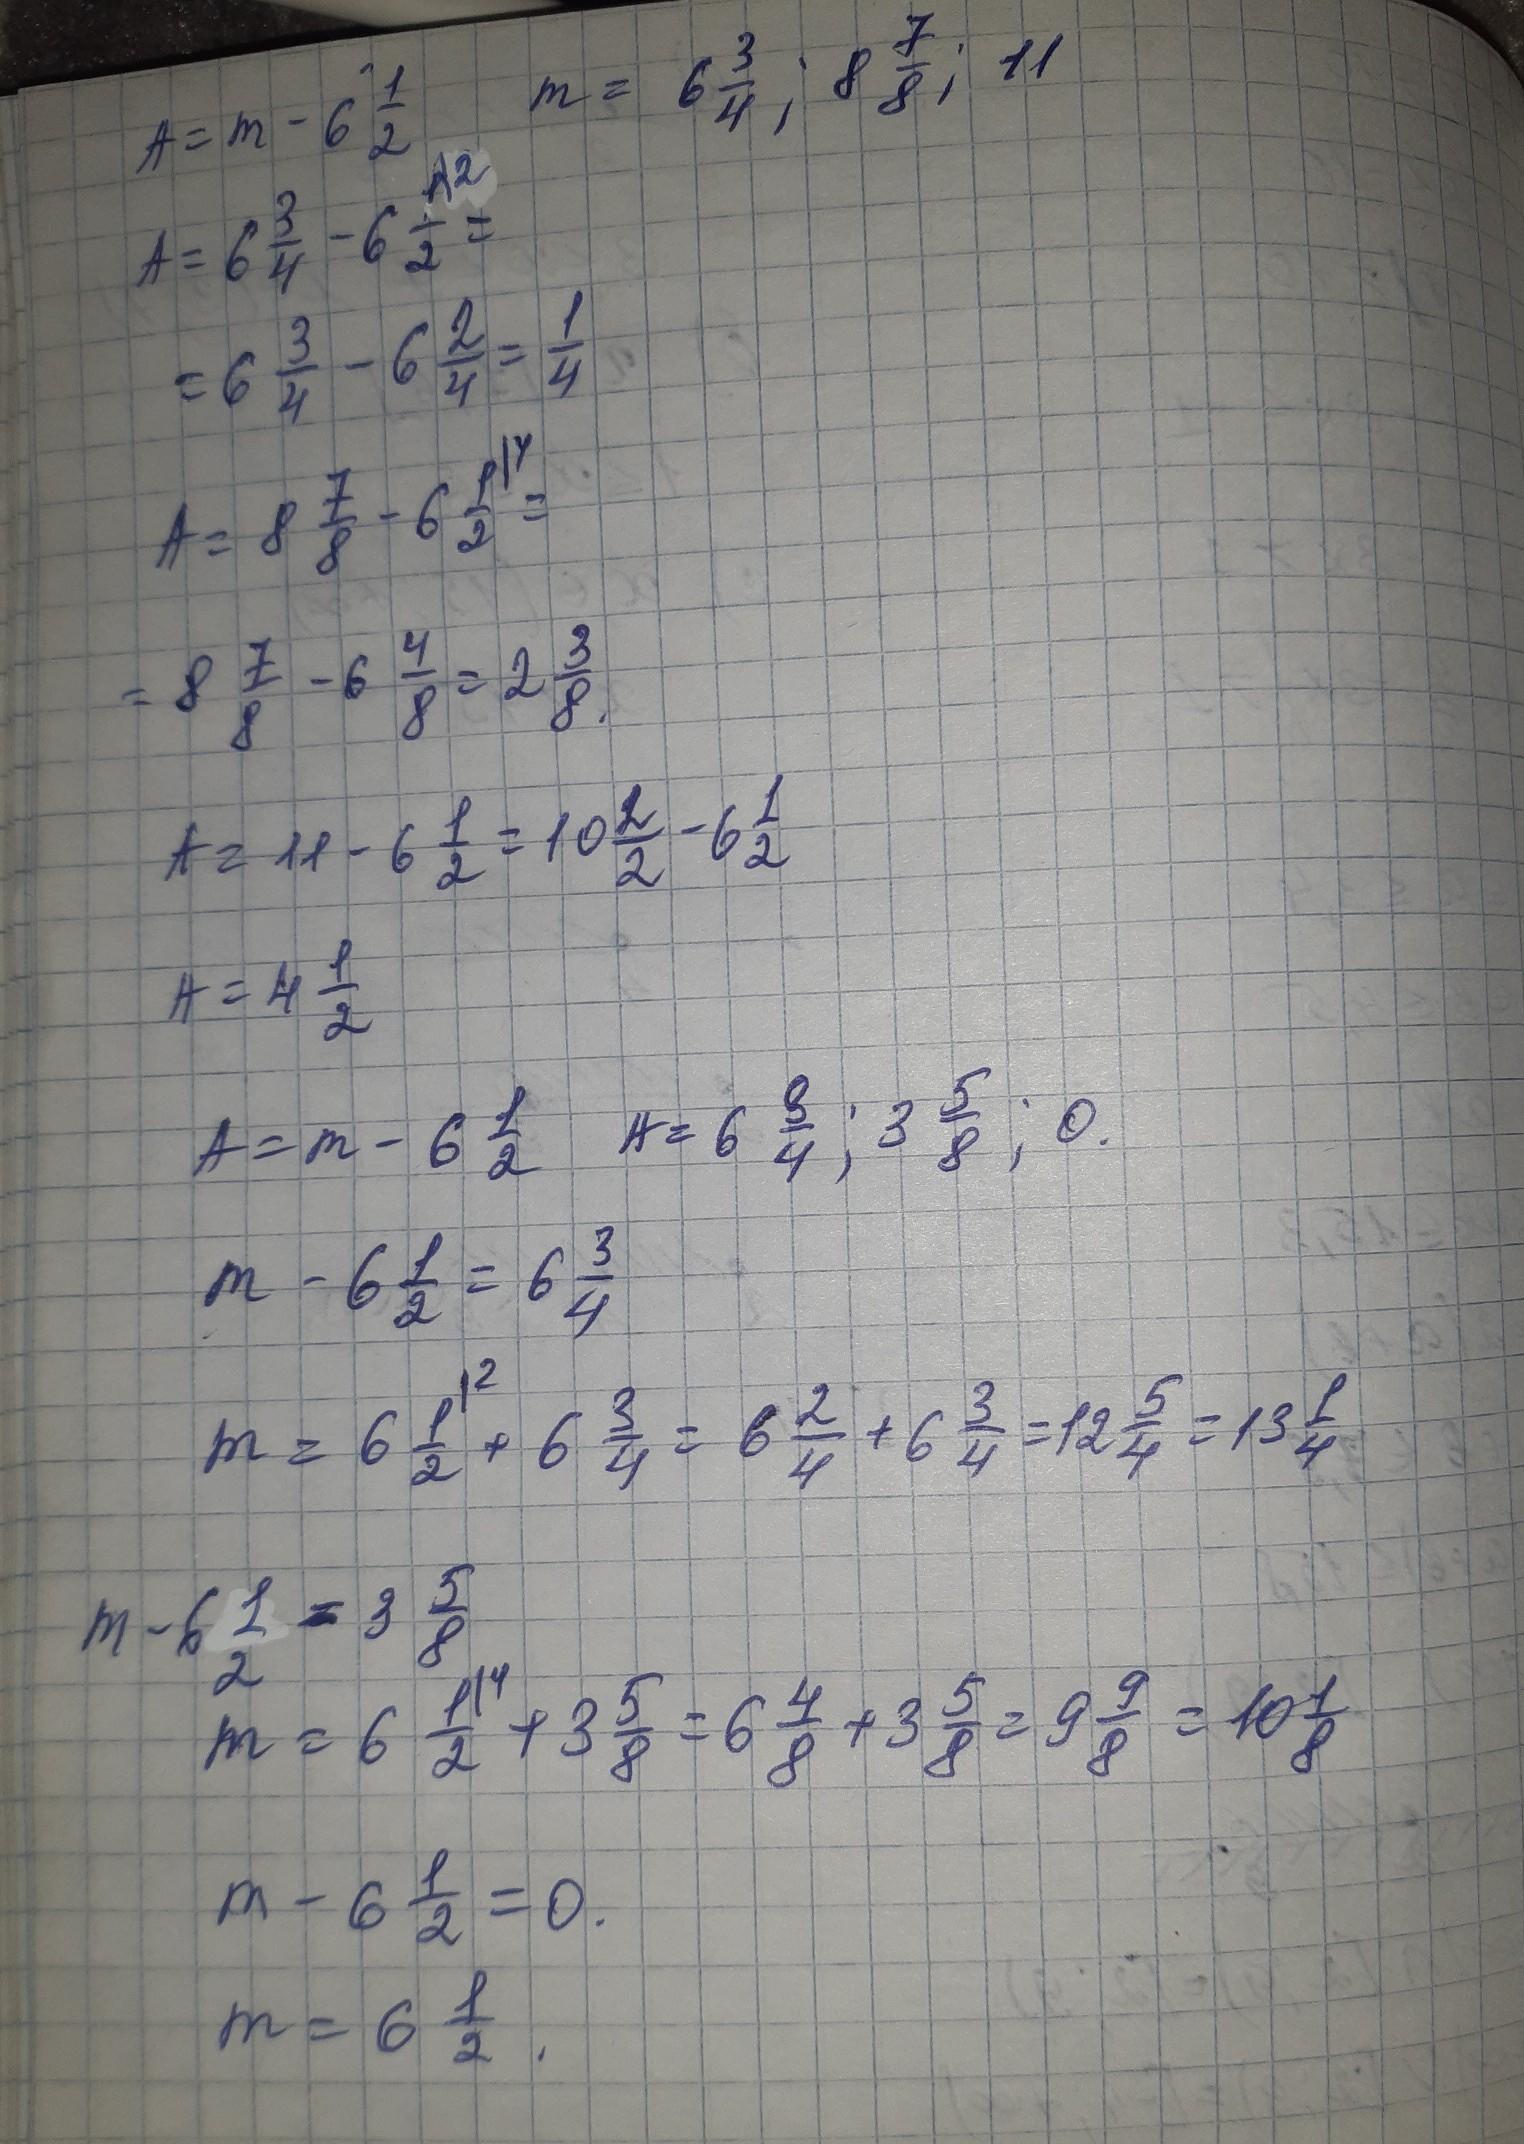 A = m - 6 1/2 m = 6 3/4 ; 8 7/8 ; 11
A = 6 3/4 - 6 1/2 |2 =
= 6 3/4 - 6 2/4 = 1/4
A = 8 7/8 - 6 1/2 |4 =
= 8 7/8 - 6 4/8 = 2 3/8.
A = 11 - 6 1/2 = 10 2/2 - 6 1/2
A = 4 1/2
A = m - 6 1/2 A = 6 3/4 ; 3 5/8 ; 0.
m - 6 1/2 = 6 3/4
m = 6 1/2 |2 + 6 3/4 = 6 2/4 + 6 3/4 = 12 5/4 = 13 1/4
m - 6 1/2 = 3 5/8
m = 6 1/2 |4 + 3 5/8 = 6 4/8 + 3 5/8 = 9 9/8 = 10 1/8
m - 6 1/2 = 0.
m = 6 1/2.